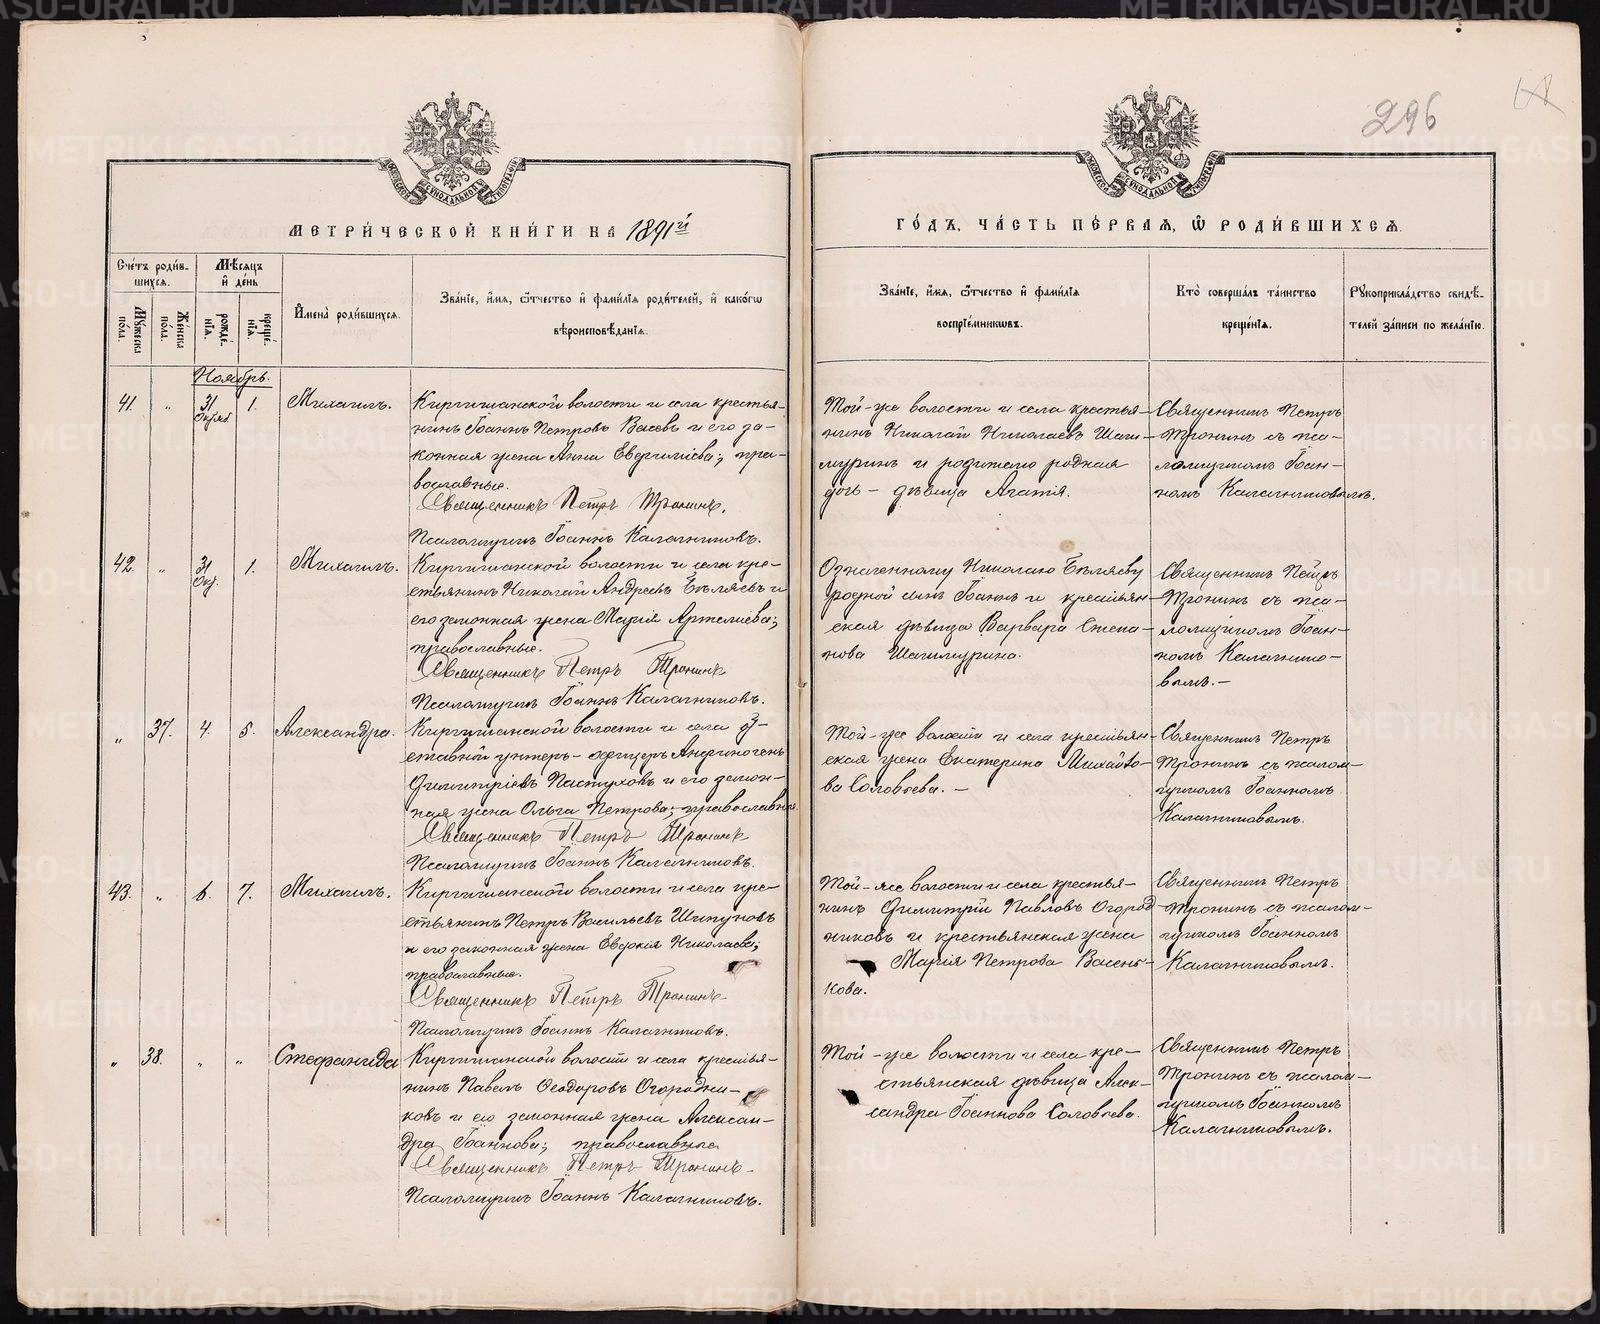 296
МЕТРИ́ЧЕСКОЙ КНИ́ГИ НА 1891й
ГО́ДЪ, ЧА́СТЬ ПЕ́РВАЯ, Ѿ РОДИ́ВШИХСЯ.
Сче́тъ роди́в-
шихся.
Мꙋ́жеска по́ла.
Же́нска по́ла.
Мѣ́сяцъ и҆ де́нь
рожде́-нія.
креще́-нія.
И҆мена̀ роди́вшихся.
Зва́ніе, и҆́мя, ѻ҆́тчество и҆ фами́лія роди́телей, и҆ како́гѡ
вѣроисповѣ́данія.
Зва́ніе, и҆́мя, ѻ҆́тчество и҆ фами́лія
воспріе́мникѡвъ.
Кто̀ соверша́лъ та́инство
креще́нія.
Рꙋкоприкла́дство свидѣ́-
телей за́писи по жела́нію.
Ноябрь.
41. " 31 Октяб. 1. Михаилъ.
Киргишанской волости и села крестья-
нинъ Іоаннъ Петровъ Васевъ и его за-
конная жена Анна Евдгиліева; пра-
вославные.
Священникъ Петръ Тронинъ.
Псаломщикъ Іоаннъ Калачниковъ.
Той-же волости и села крестья-
нинъ Николай Николаевъ Шаш-
муринъ и родителю родная
дочь - дѣвица Агафія.
Священникъ Петръ
Тронинъ съ пса-
ломщикомъ Іоан-
номъ Калачниковымъ.
42. " 31 Окт. 1. Михаилъ.
Киргишанской волости и села кре-
стьянинъ Николай Андреевъ Бѣляевъ и
его законная жена Марія Артеміева;
православные.
Священникъ Петръ Тронинъ
Псаломщикъ Іоаннъ Калачниковъ.
Означенному Николаю Бѣляеву
родной сынъ Іоаннъ и крестьян-
ская дѣвица Варвара Степа-
нова Шашмурина.
Священникъ Петръ
Тронинъ съ пса-
ломщикомъ Іоан-
номъ Калачнико-
вымъ. -
" 37. 4. 5. Александра.
Киргишанской волости и села От-
ставной унтеръ-офицеръ Анфиногенъ
Димитріевъ Пастуховъ и его закон-
ная жена Ольга Петрова; православные.
Священникъ Петръ Тронинъ
Псаломщикъ Іоаннъ Калачниковъ.
Той-же волости и села крестьян-
ская жена Екатерина Михайло-
ва Соловьева. -
Священникъ Петръ
Тронинъ съ псалом-
щикомъ Іоанномъ
Калачниковымъ.
43. " 6. 7. Михаилъ.
Киргишанской волости и села кре-
стьянинъ Петръ Васильевъ Шипуновъ
и его законная жена Евдокія Николаева;
православные.
Священникъ Петръ Тронинъ
Псаломщикъ Іоаннъ Калачниковъ.
Той-же волости и села крестья-
нинъ Димитрій Павловъ Огород-
никовъ и крестьянская жена
Марія Петрова Васень-
кова.
Священникъ Петръ
Тронинъ съ псалом-
щикомъ Іоанномъ
Калачниковымъ.
" 38. " " Стефанида
Киргишанской волости и села крестья-
нинъ Павелъ Ѳеодоровъ Огородни-
ковъ и его законная жена Алексан-
дра Іоаннова; православные
Священникъ Петръ Тронинъ
Псаломщикъ Іоаннъ Калачниковъ.
Той-же волости и села кре-
стьянская дѣвица Алек-
сандра Іоаннова Соловьева.
Священникъ Петръ
Тронинъ съ псалом-
щикомъ Іоанномъ
Калачниковымъ.
METRIKI.GASO-URAL.RU